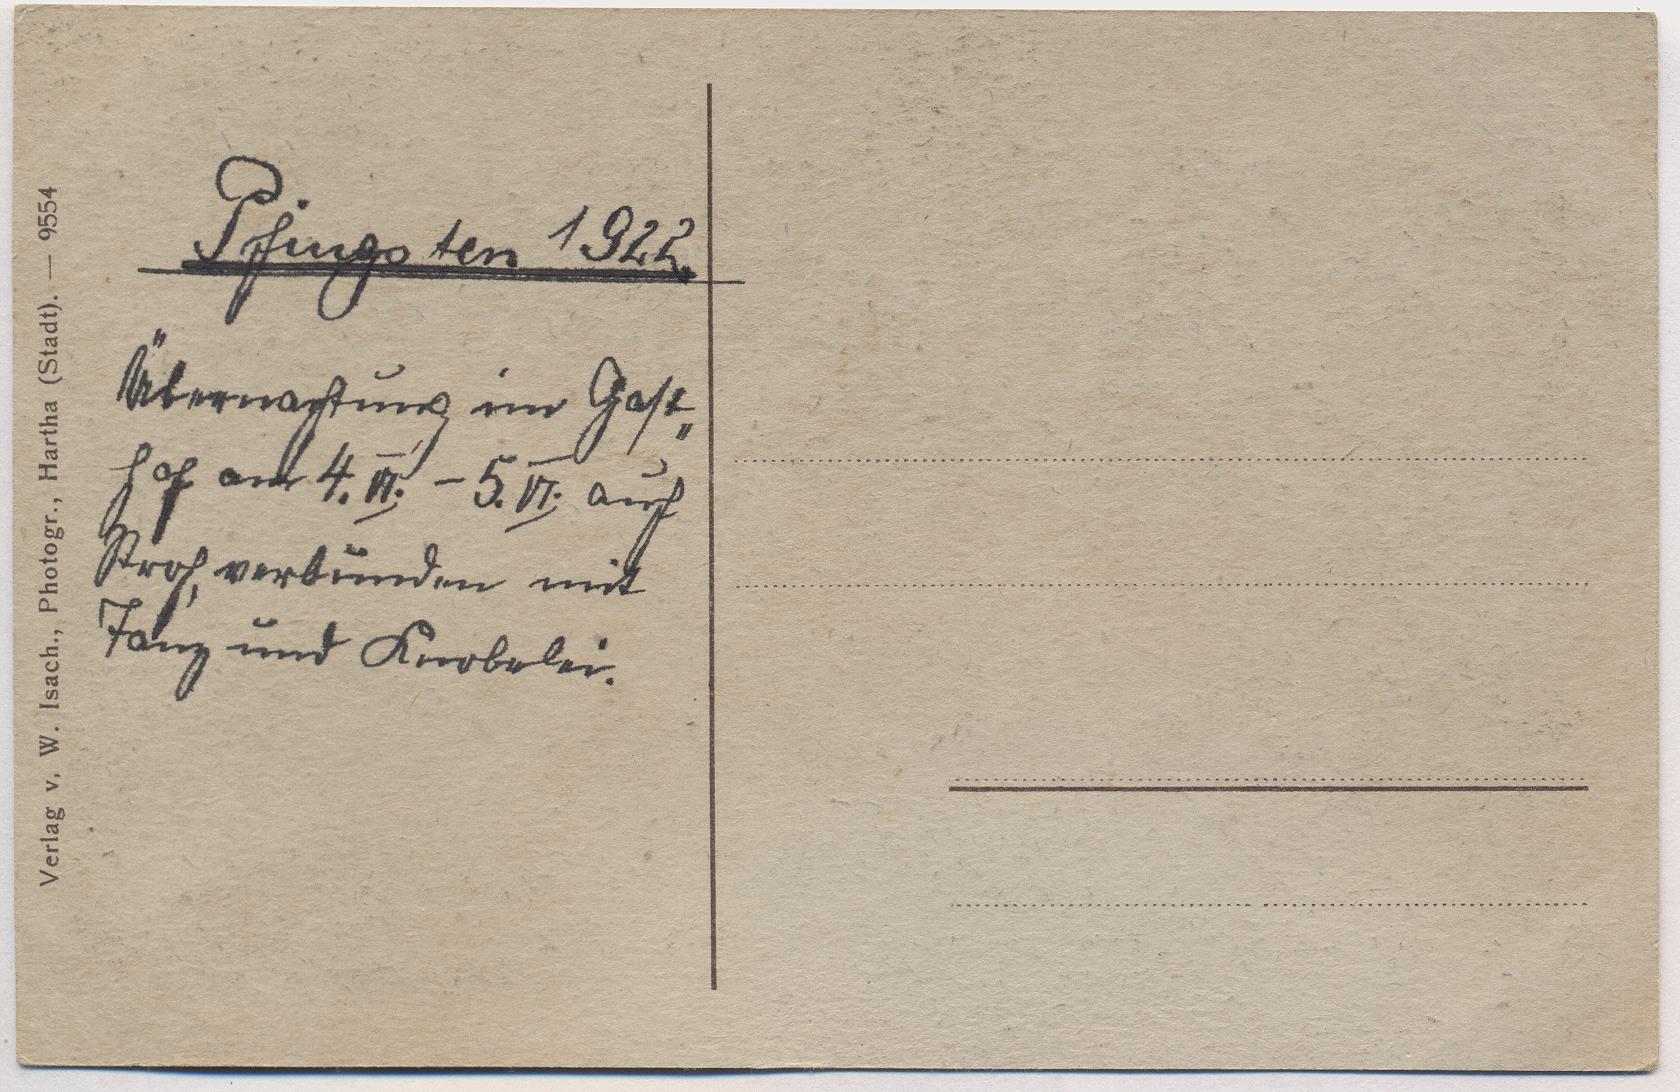 Pfingsten 1922.
Übernachtung im Gast-
hof am 4. VI. – 5. VI. auf
Stroh, verbunden mit
Tanz und Knobelei.
Verlag v. W. Isach., Photogr., Hartha (Stadt). — 9554